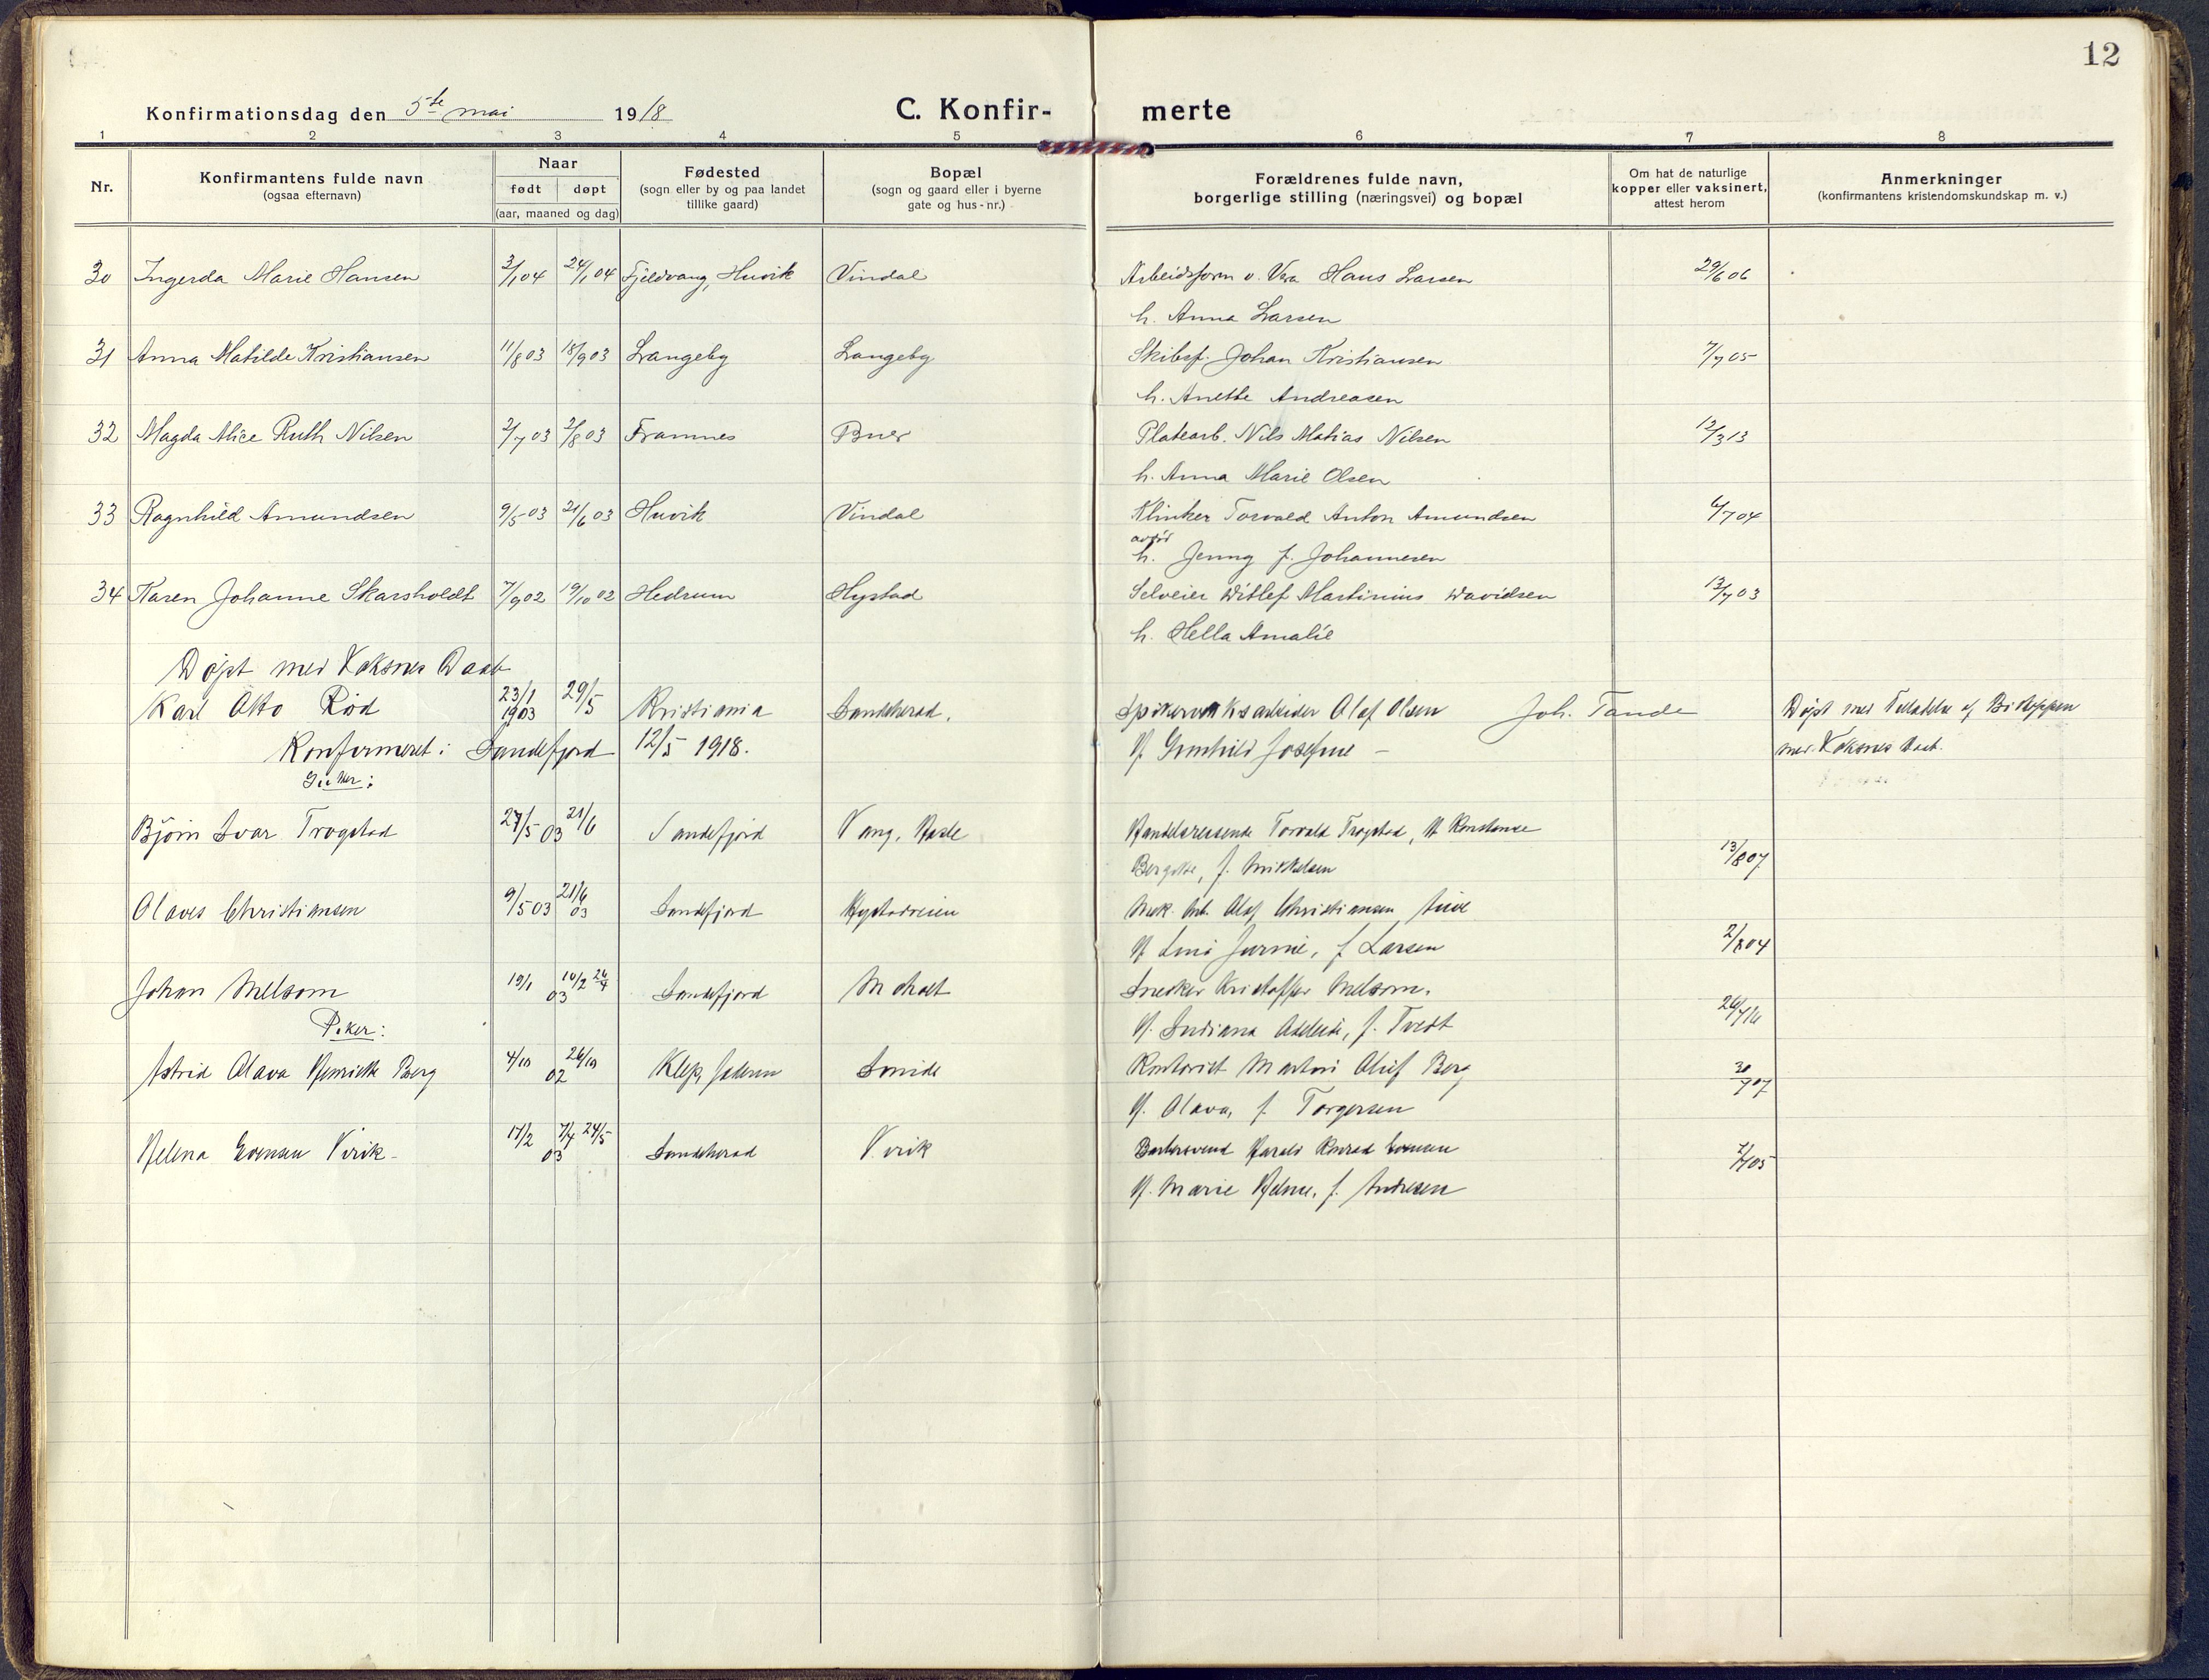 12
Konfirmationsdag den 5te mai 1918
C. Konfir- merte
1 2 3 4 5 6 7 8
Nr.
Konfirmantens fulde navn
(ogsaa efternavn)
Naar
født døpt
(aar, maaned og dag)
Fødested
(sogn eller by og paa landet
tillike gaard)
Bopæl
(sogn og gaard eller i byerne
gate og hus-nr.)
Forældrenes fulde navn,
borgerlige stilling (næringsvei) og bopæl
Om hat de naturlige
kopper eller vaksinert,
attest herom
Anmerkninger
(konfirmantens kristendomskundskap m. v.)
30 Ingerda Marie Hansen 3/1 04 24/1 04 Fjeldvang, Huvik Vindal Arbeidsform. v. Vera Hans Larsen 29/6 06
h. Anna Larsen
31 Anna Matilde Kristiansen 11/8 03 18/9 03 Langeby Langeby Skibsf. Johan Kristiansen 7/7 05
h. Anette Andreasen
32 Magda Alice Ruth Nilsen 2/7 03 2/8 03 Framnes Buer Platearb. Nils Matias Nilsen 12/3 13
h. Anna Marie Olsen
33 Ragnhild Amundsen 9/5 03 21/6 03 Huvik Vindal Klinker Torvald Anton Amundsen 6/7 04
h. Jenny f. Johannesen
34 Karen Johanne Skarsholdt 7/9 02 19/10 02 Hedrum Hystad Selveier Ditlef Martinius Davidsen 13/7 03
h. Hella Amalie
Døpt med Voksnes Daab
Karl Otto Rød 23/1 1903 29/5 Kristiania Sandeherad. Spikerverksarbeider Olaf Olsen Joh. Tande Døpt med Tilladelse af Biskoppen
Konfirmeret i Sandefjord 12/5 1918. H. Gunhild Josefine – med Voksnes Daab.
Gutter:
Bjørn Ivar Trogstad 27/5 21/6 03 Sandefjord Vang, Hasle Handelsreisende Torvald Trogstad, H. Konstanse
f. Mikkelsen 13/8 07
Olaves Christiansen 9/5 03 21/6 03 Sandefjord Hystadveien Mek. Arb. Olaf Christiansen
f. Larsen 2/8 04
Johan Melsom 19/1 03 Sandefjord Moholt Snedker Kristoffer Melsom.
H. Indiana f. Tvedt
Piker:
Astrid Olava Henriette Berg 4/10 26/10 02 Klep, Jæderen Kontorist Martin Oluf Berg 30/7 07
H. Olava, f. Torgersen
Helena Evensen Virik 03 24/5 Sandeherad Virik Harald Konrad Evensen
H. Marie Helene, f. Andresen